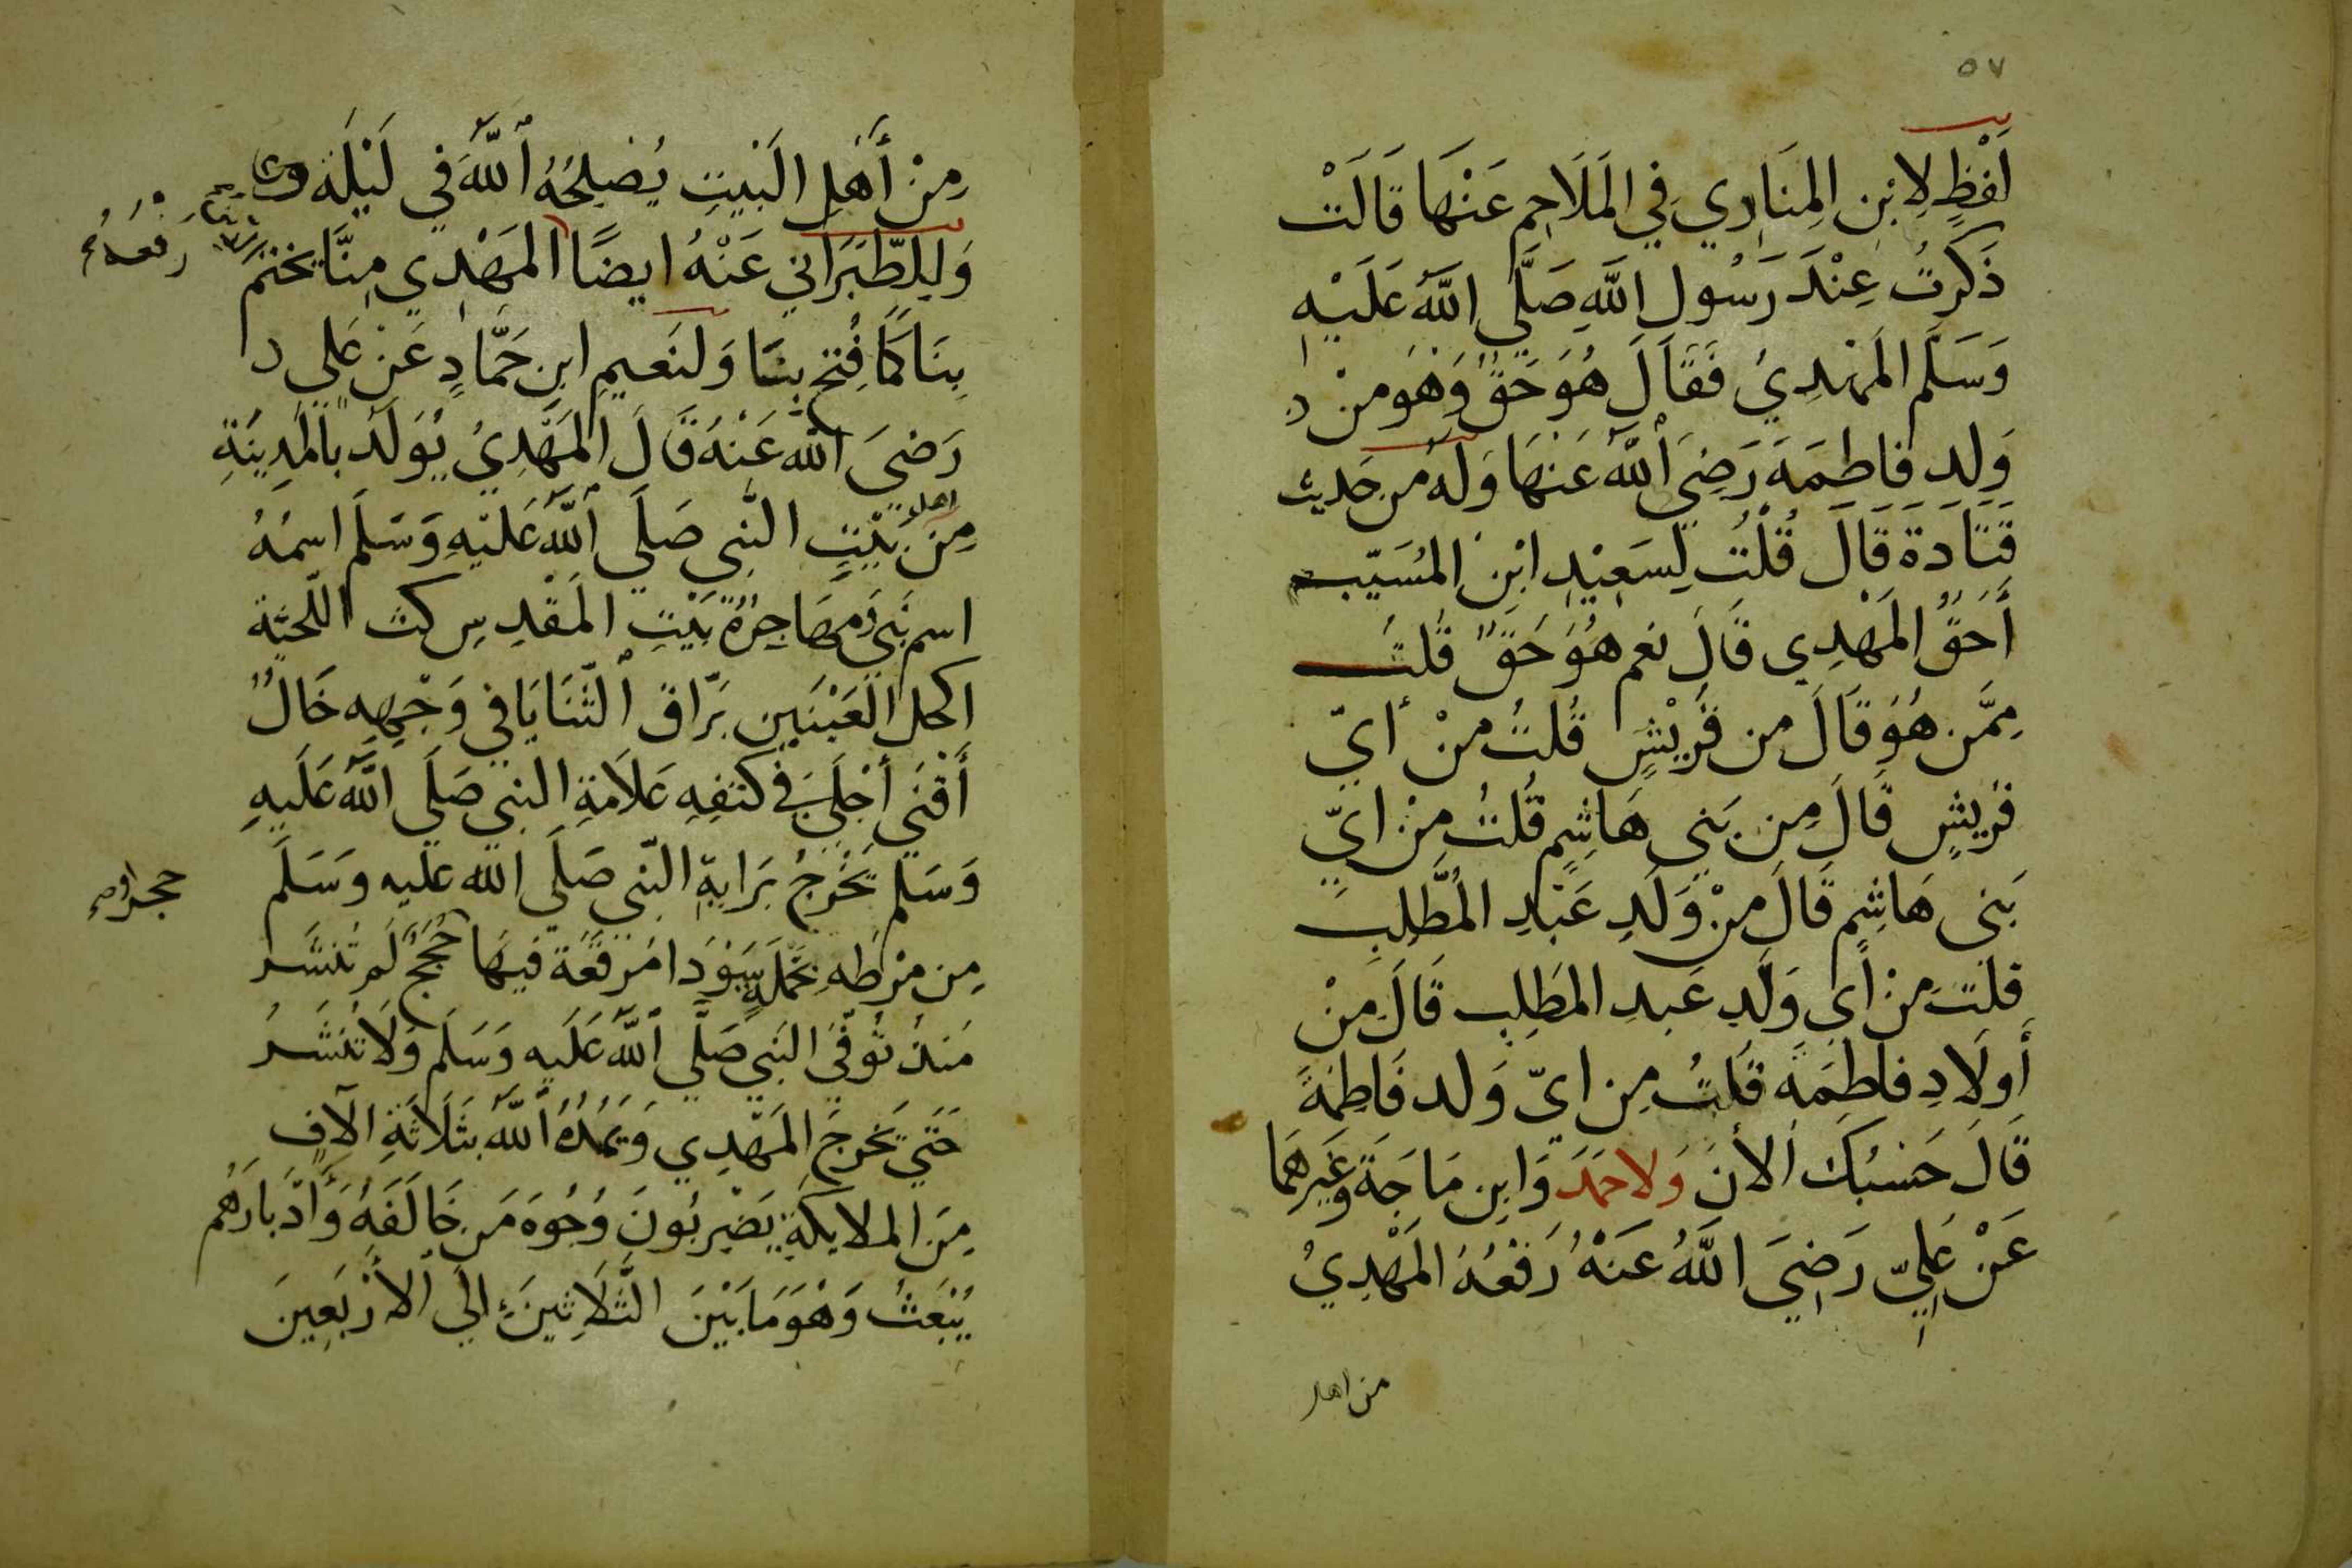 ٥٧
لَفْظٍ لِابْنِ المِنَادِي فِي المَلَاحِمِ عَنْهَا قَالَتْ
ذَكَرتُ عِنْدَ رَسُولِ اللَّهِ صَلَّى اللَّهُ عَلَيْهِ
وَسَلَّمَ المَهْدِيُ فَقَالَ هُوَ حَقٌّ وَهُوَ مِنْ
وَلَدِ فَاطِمَةَ رَضِيَ اللَّهُ عَنْهَا وَلَهُ مِن حَدِيث
قَتَادَةَ قَالَ قُلْتُ لِسَعِيْدِ ابْنِ المُسَيّب
أَحَقٌّ المَهْدِي قَالَ نعم هُوَ حَقٌّ قُلتُ
مِمَّن هُوَ قَالَ من قُرَيْشٍ قُلتُ مِنْ أيّ
قُرَيشٍ قَالَ مِن بَنِي هَاشِمٍ قُلتُ مِنْ ايّ
بَنِي هَاشِمٍ قَالَ مِنْ وَلَدِ عَبْدِ المُطَّلِبِ
قلت مِنْ أَي وَلَدِ عَبدِ المطَلِبِ قَالَ مِنْ
أَولَادِ فاطِمَةَ قُلتُ مِن ايّ وَلد فَاطِمَةَ
قَالَ حَسْبُكَ الآنَ وَلاحمَدَ وَابنِ مَاجَةَ وَغَيرهمَا
عَنْ عَلِيّ رَضِيَ اللَّهُ عَنْهُ رَفْعُهُ المَهْدِيُ
من اهل
مِنْ أَهْلِ البَيتِ يُصْلِحُهُ اللَّهُ فِي لَيْلَةٍ
وَلِلطَّبَرَانِي عَنْهُ ايضًا المَهْدِي مِنَّا يختم
رَفْعُهُ
بِنَا كَمَا فُتِحَ بِنَا وَلنَعيمِ ابنِ حَمَّادٍ عَنْ عَلي
رَضيَ اللَّه عَنْهُ قَالَ المَهْدِيُ يُولَدُ بالمَدِينَةِ
اهل
مِن بَيْتِ النَّبِي صَلَّي اللَّهُ عَلَيْهِ وَسَلَّمَ اسمُهُ
اسم نَبِي وَمُهَاجِرُهُ بَيْتِ المَقْدِسِ كث اللّحْيَة
اكحل العَيْنَينِ بَرَّاق الثَّنَايَا في وَجْهِهِ خَالٌ
أَقْنَى أَجْلَي فِي كتفِهِ عَلَامَةِ النبي صَلَّي اللَّهُ عَلَيهِ
وَسَلم يَخْرُجُ بِرَايةِ النّبِي صَلَّي اللَّه عليه وَسَلَّمَ
مِن مِرْطِهِ مُخْمَلَةٍ سَوْدَا مُرَقَّعَة فِيهَا حُجَجٌ لَم تُنْشَر
مُنذُ تُوُفّي النَبِي صَلَّي اللَّهُ عَلَيهِ وَسَلَّمَ وَلَا تُنْشَرُ
حَتَي يَخرجَ المَهْدِي وَيَمُدُّهُ اللَّهُ بثَلَاثَةِ الآفٍ
مِنَ المَلايِكَةِ يَضْرِبُونَ وُجُوهَ مَن خَالَفَهُ وَأَدْبَارَهُم
يُبْعَثُ وَهْوَ مَا بَيْنَ الثَّلَاثِينَ الي الأَرْبَعِينَ